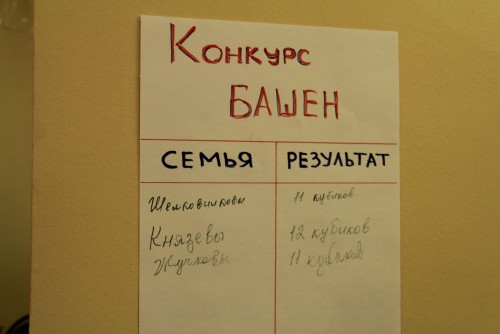 Конкурс
БАШЕН
СЕМЬЯ РЕЗУЛЬТАТ
Шелковниковы 11 кубиков
Князевы 12 кубиков
Жучковы 11 кубиков